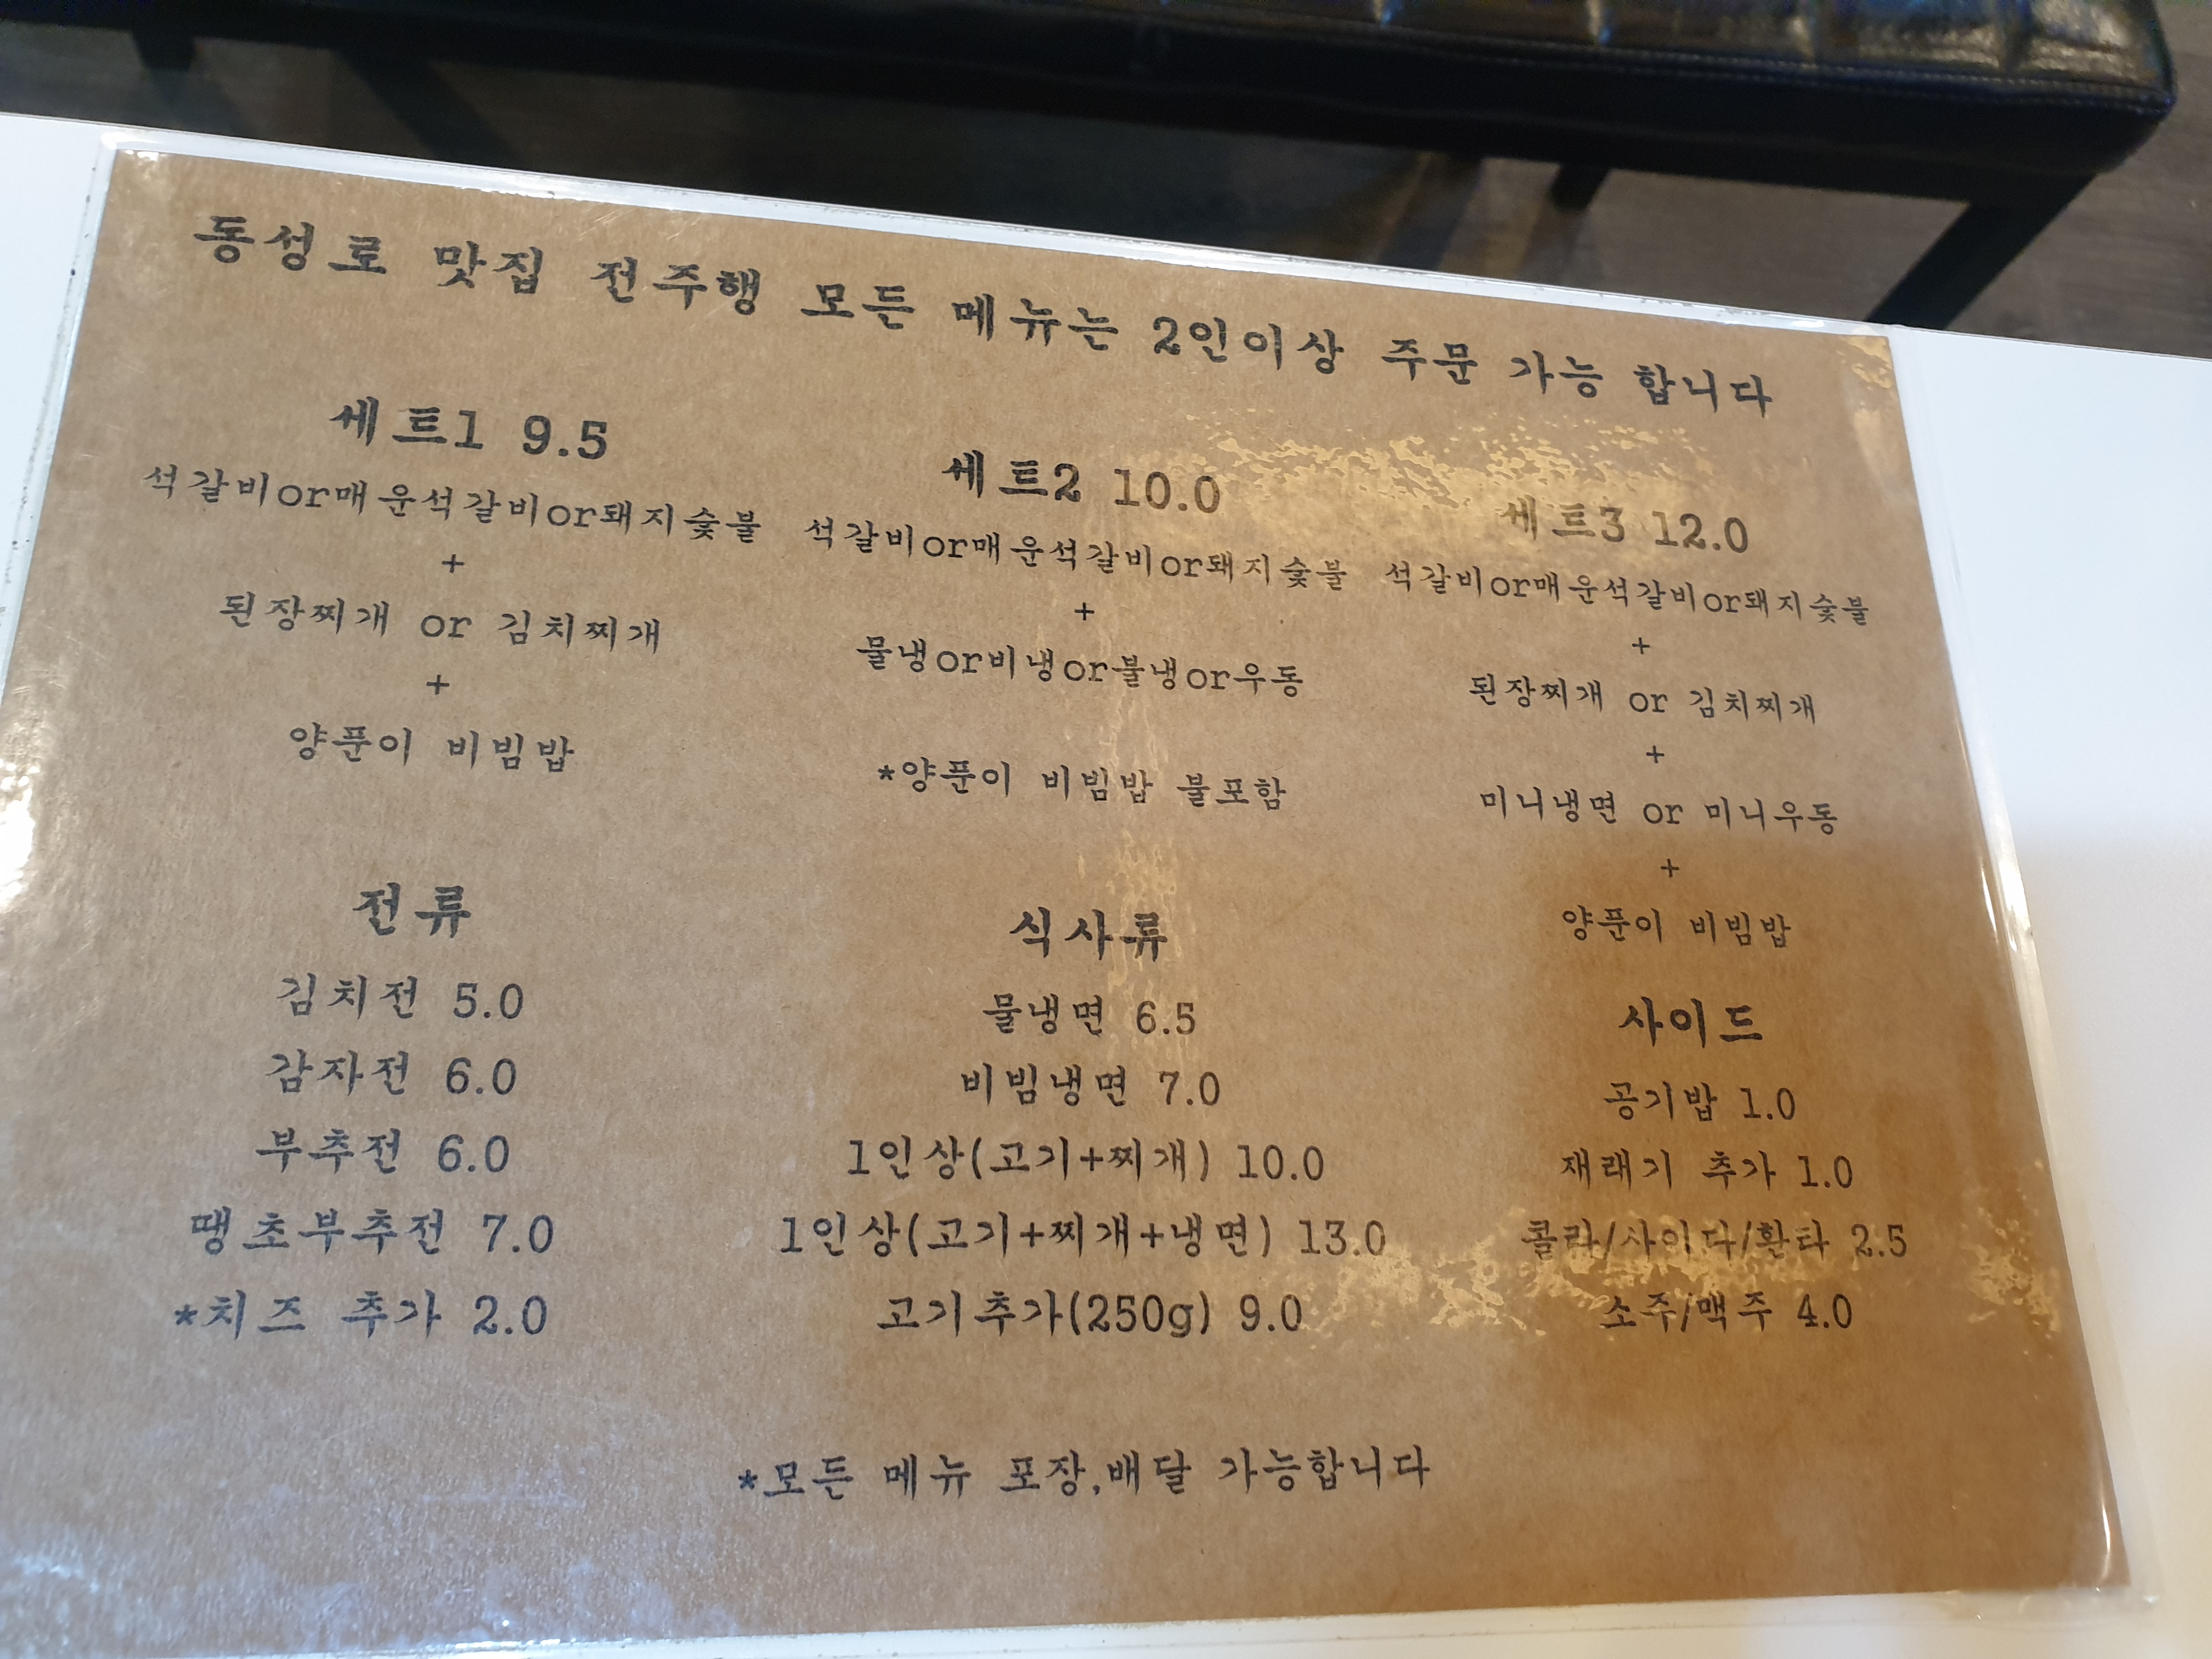 동성로 맛집 전주행 모든 메뉴는 2인이상 주문 가능 합니다
세트1 9.5
석갈비or매운석갈비or돼지숯불
+
된장찌개 or 김치찌개
+
양푼이 비빔밥
세트2 10.0
석갈비or매운석갈비or돼지숯불
+
물냉or비냉or불냉or우동
*양푼이 비빔밥 불포함
세트3 12.0
석갈비or매운석갈비or돼지숯불
+
된장찌개 or 김치찌개
+
미니냉면 or 미니우동
+
양푼이 비빔밥
전류
김치전 5.0
감자전 6.0
부추전 6.0
땡초부추전 7.0
*치즈 추가 2.0
식사류
물냉면 6.5
비빔냉면 7.0
1인상(고기+찌개) 10.0
1인상(고기+찌개+냉면) 13.0
고기추가(250g) 9.0
사이드
공기밥 1.0
재래기 추가 1.0
콜라/사이다/환타 2.5
소주/맥주 4.0
*모든 메뉴 포장,배달 가능합니다